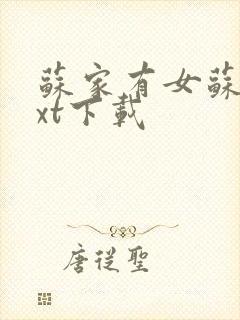 蘇家有女蘇
xt下載
唐從聖